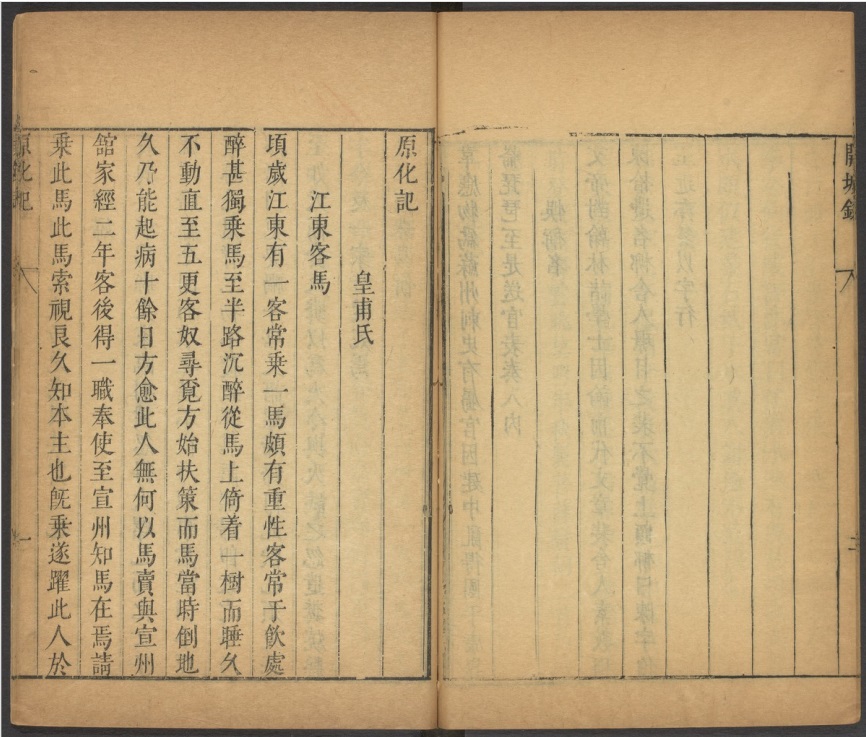 開城錄
原化記
皇甫氏
江東客馬
頃歲江東有一客常乘一馬頗有重性客常于飲處
醉甚獨乘馬至半路沉醉從馬上倚着一樹而睡久
不動直至五更客奴尋覓方始扶策而馬當時倒地
久乃能起病十餘日方愈此人無何以馬賣與宣州
舘家經二年客後得一職奉使至宣州知馬在焉請
乘此馬此馬索視良久知本主也旣乘遂躍此人於
原化記
一